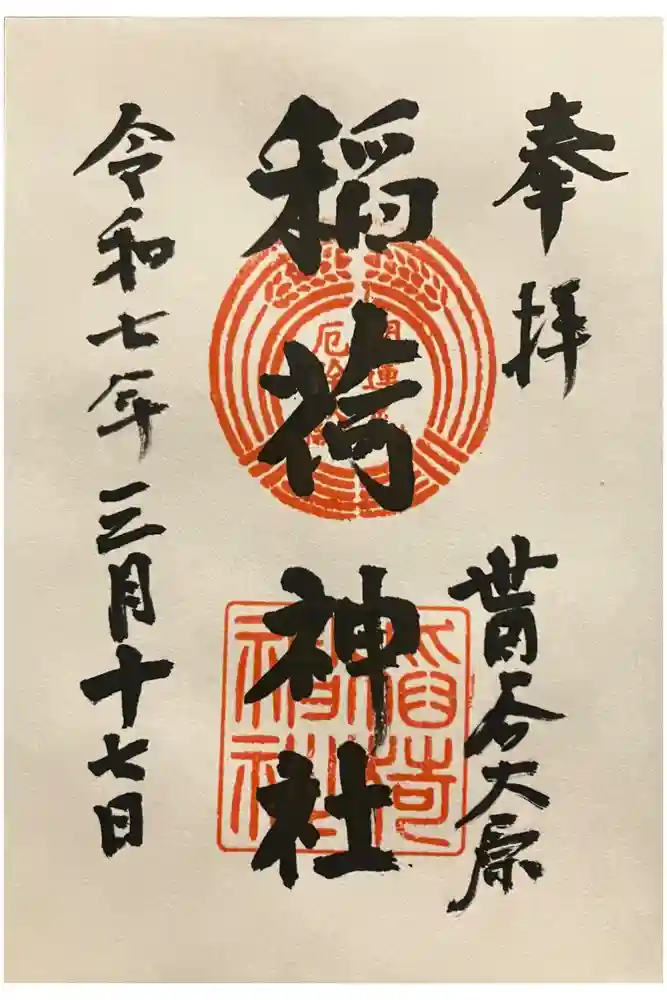 奉拝
世田谷大原
稲荷神社
令和七年三月十七日
開運
厄除
稲荷
神社